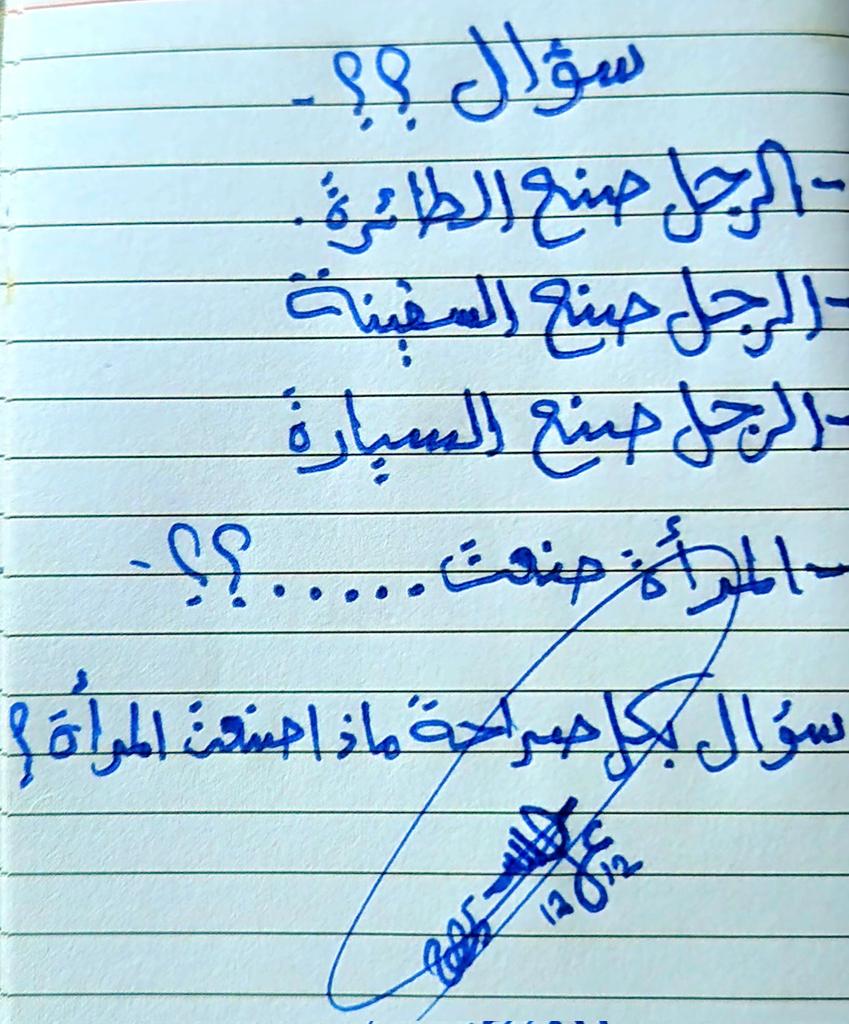 سؤال ؟؟ -
- الرجل صنع الطائرة .
- الرجل صنع السفينة
- الرجل صنع السيارة
- المرأة صنعت ..... ؟؟ -
سؤال بكل صراحة ماذا صنعت المرأة ؟
12 12